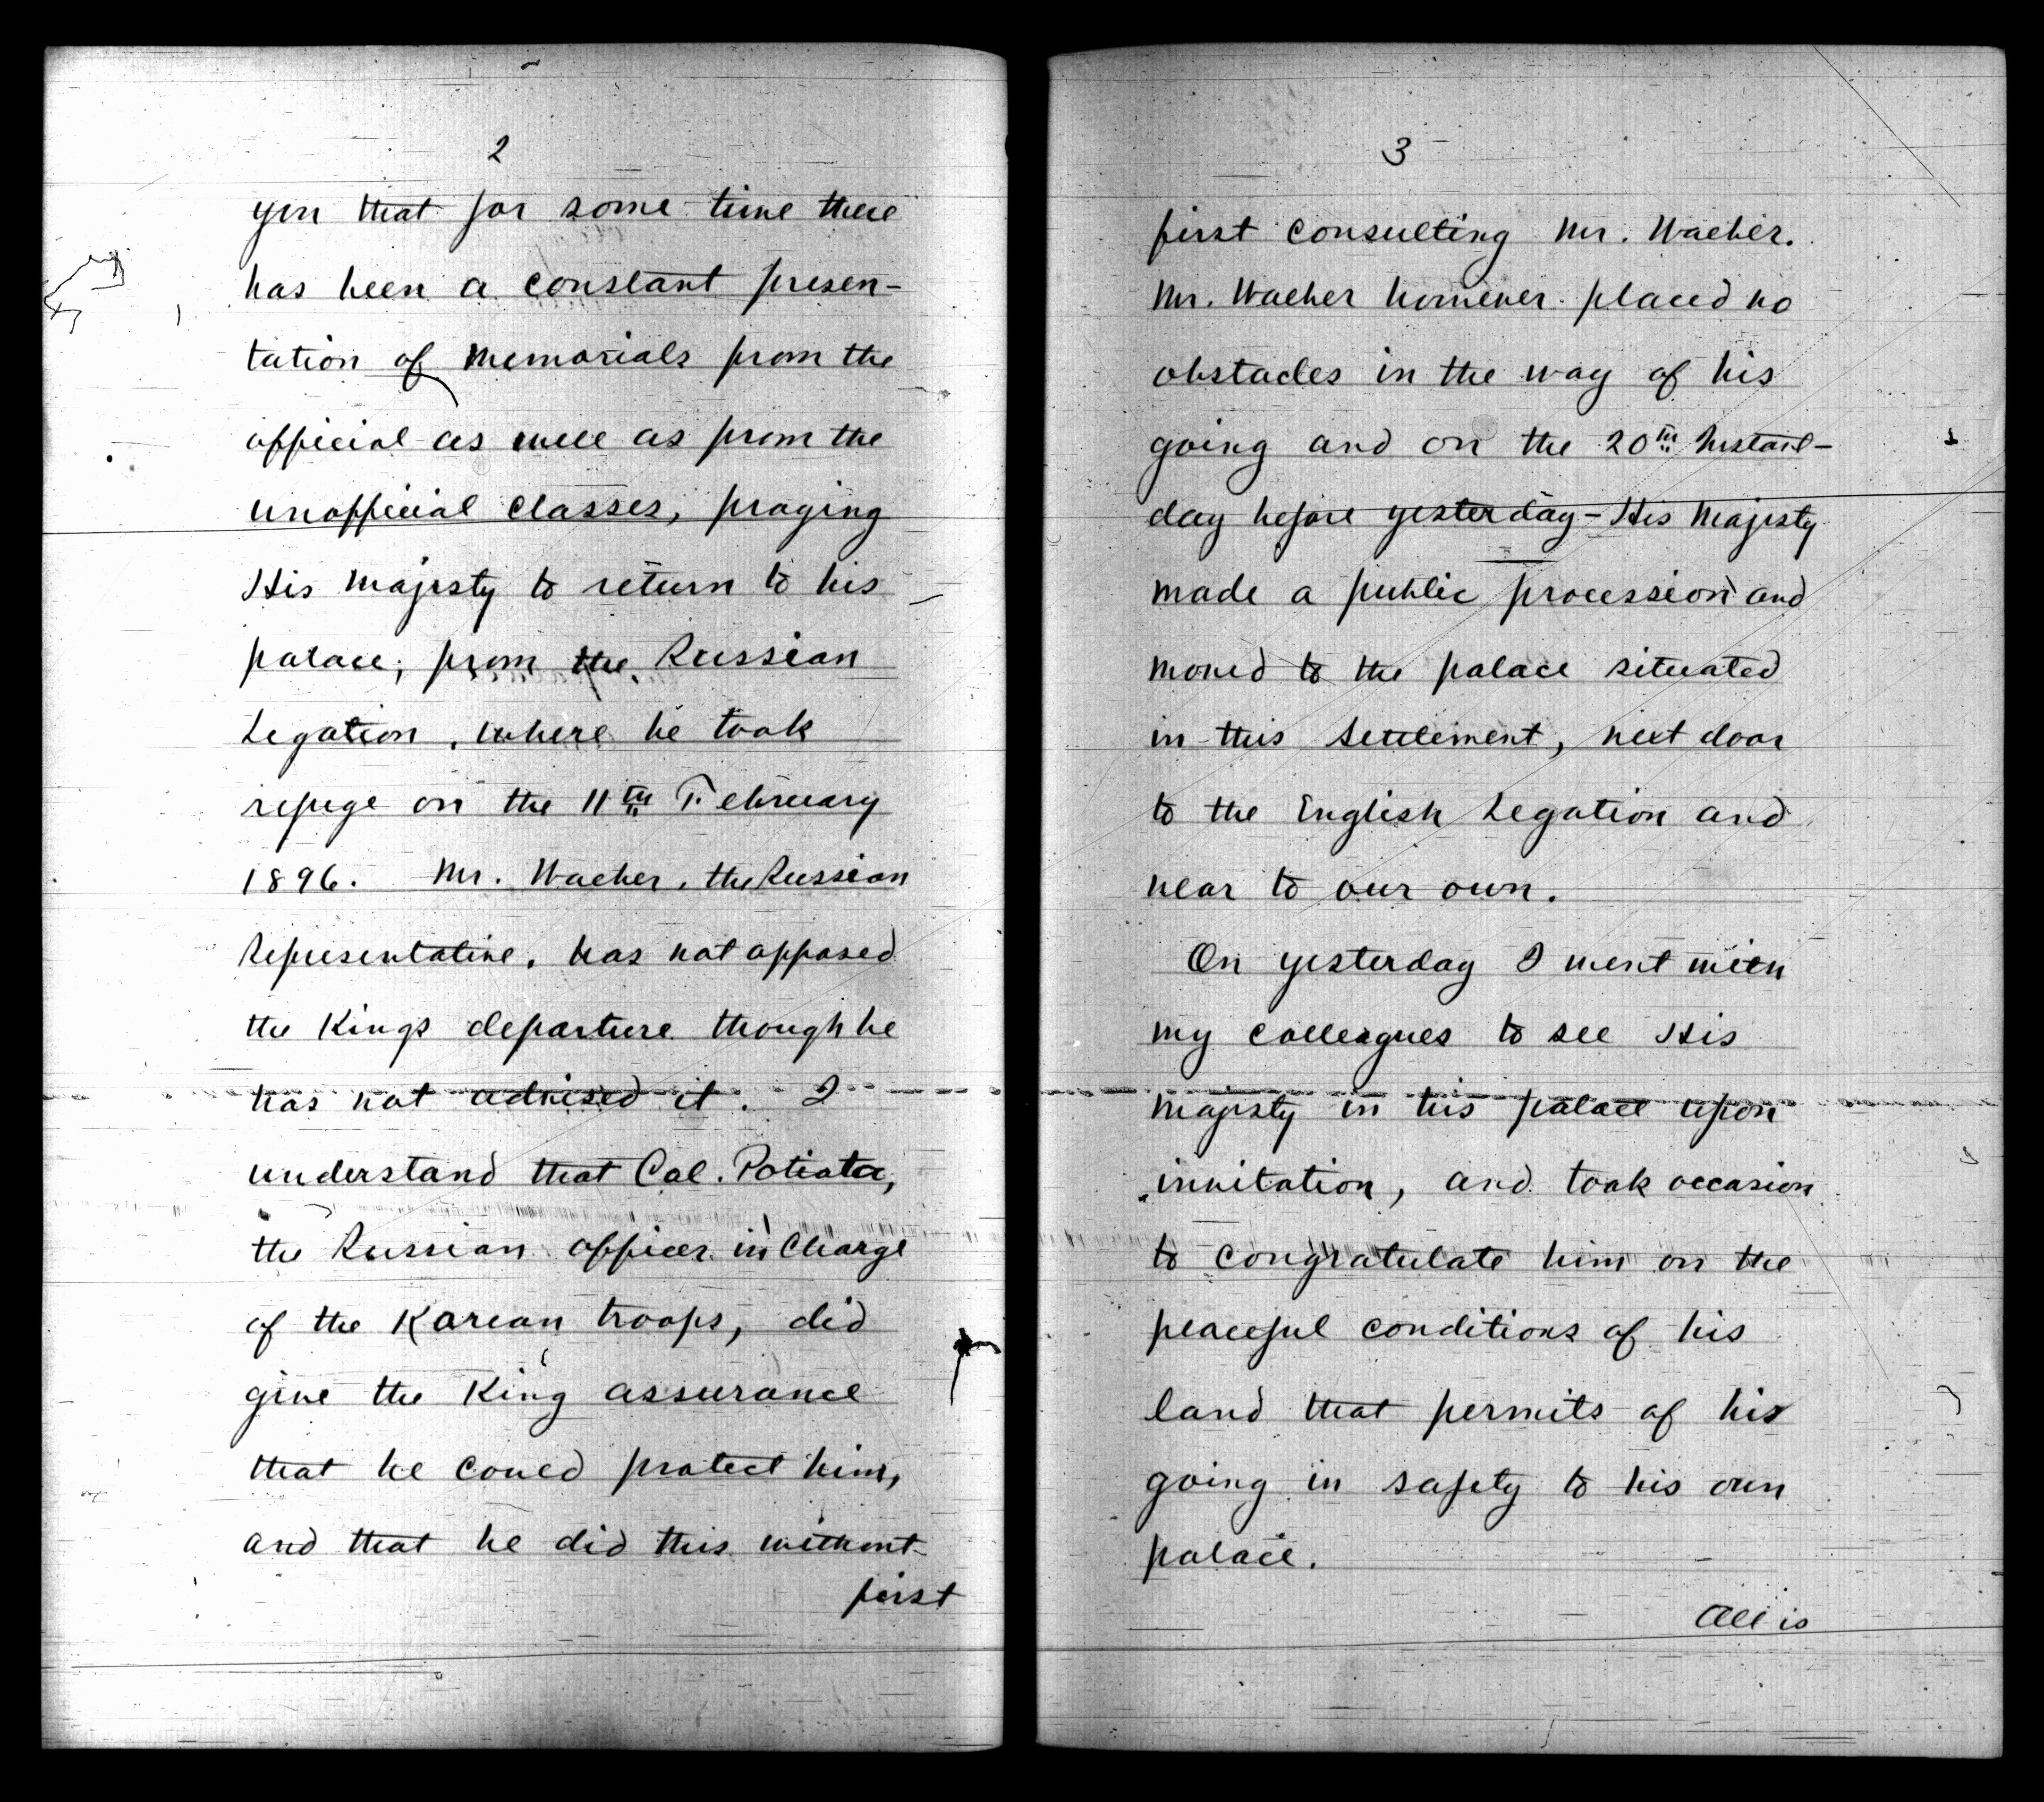 2
you that for some time there
has been a constant presen-
tation of memorials from the
official as well as from the
unofficial classes, praying
His Majesty to return to his
palace, from the Russian
Legation, where he took
refuge on the 11th February
1896. Mr. Waeber, the Russian
Representative, has not opposed
the Kings departure though he
has not advised it. I
understand that Col. Potiata,
the Russian officer in charge
of the Korean troops, did
give the King assurance
that he could protect him,
and that he did this without
first
3
first consulting Mr. Waeber.
Mr. Waeber however placed no
obstacles in the way of his
going and on the 20th Instant-
day before yesterday - His Majesty
made a public procession and
moved to the palace situated
in this Settlement, next door
to the English Legation and
near to our own.
On yesterday I went with
my colleagues to see His
Majesty in his palace upon
invitation, and took occasion
to congratulate him on the
peaceful conditions of his
land that permits of his
going in safety to his own
palace.
All is